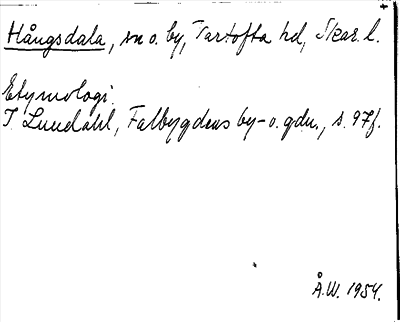 Hångsdala, sn o. by, Vartofta hd, Skar. l.
Etymologi.
I. Lundahl, Falbygdens by- o. gdn., s. 97f.
Å.W. 1954.